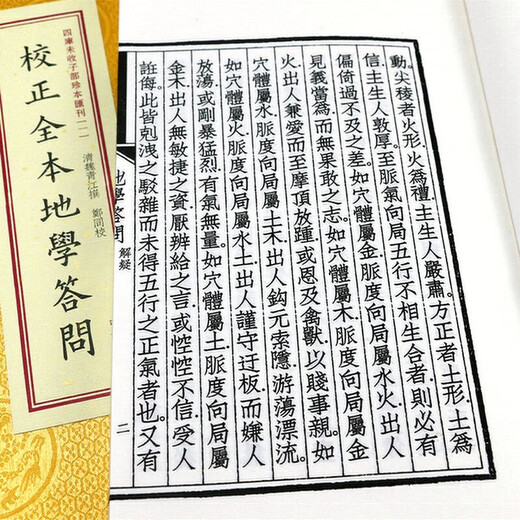 四庫未收子部珍本匯刊(一)
校正全本地學答問
清魏青江撰 鄭同校
動.尖稜者火形.火為禮.主生人嚴肅.方正者土形.土為
信.主生人敦厚.至脈氣向局五行不相生合者則必有
偏倚過不及之差.如穴體屬金.脈度向局屬水火.出人
見義當為.而無果敢之志.如穴體屬木.脈度向局屬金
火.出人兼愛而至摩頂放踵.或恩及禽獸.以賤事親.如
穴體屬水.脈度向局屬土木.出人鈎元索隱.游蕩漂流.
如穴體屬火.脈度向局屬水土.出人謹守迂板而嫌人
放蕩.或剛暴猛烈.有氣無量.如穴體屬土.脈度向局屬
金木.出人無敏捷之資.厭辨給之言.或悾悾不信.受人
誑侮.此皆剋洩之駁雜而未得五行之正氣者也.又有
地學答問
解疑
二